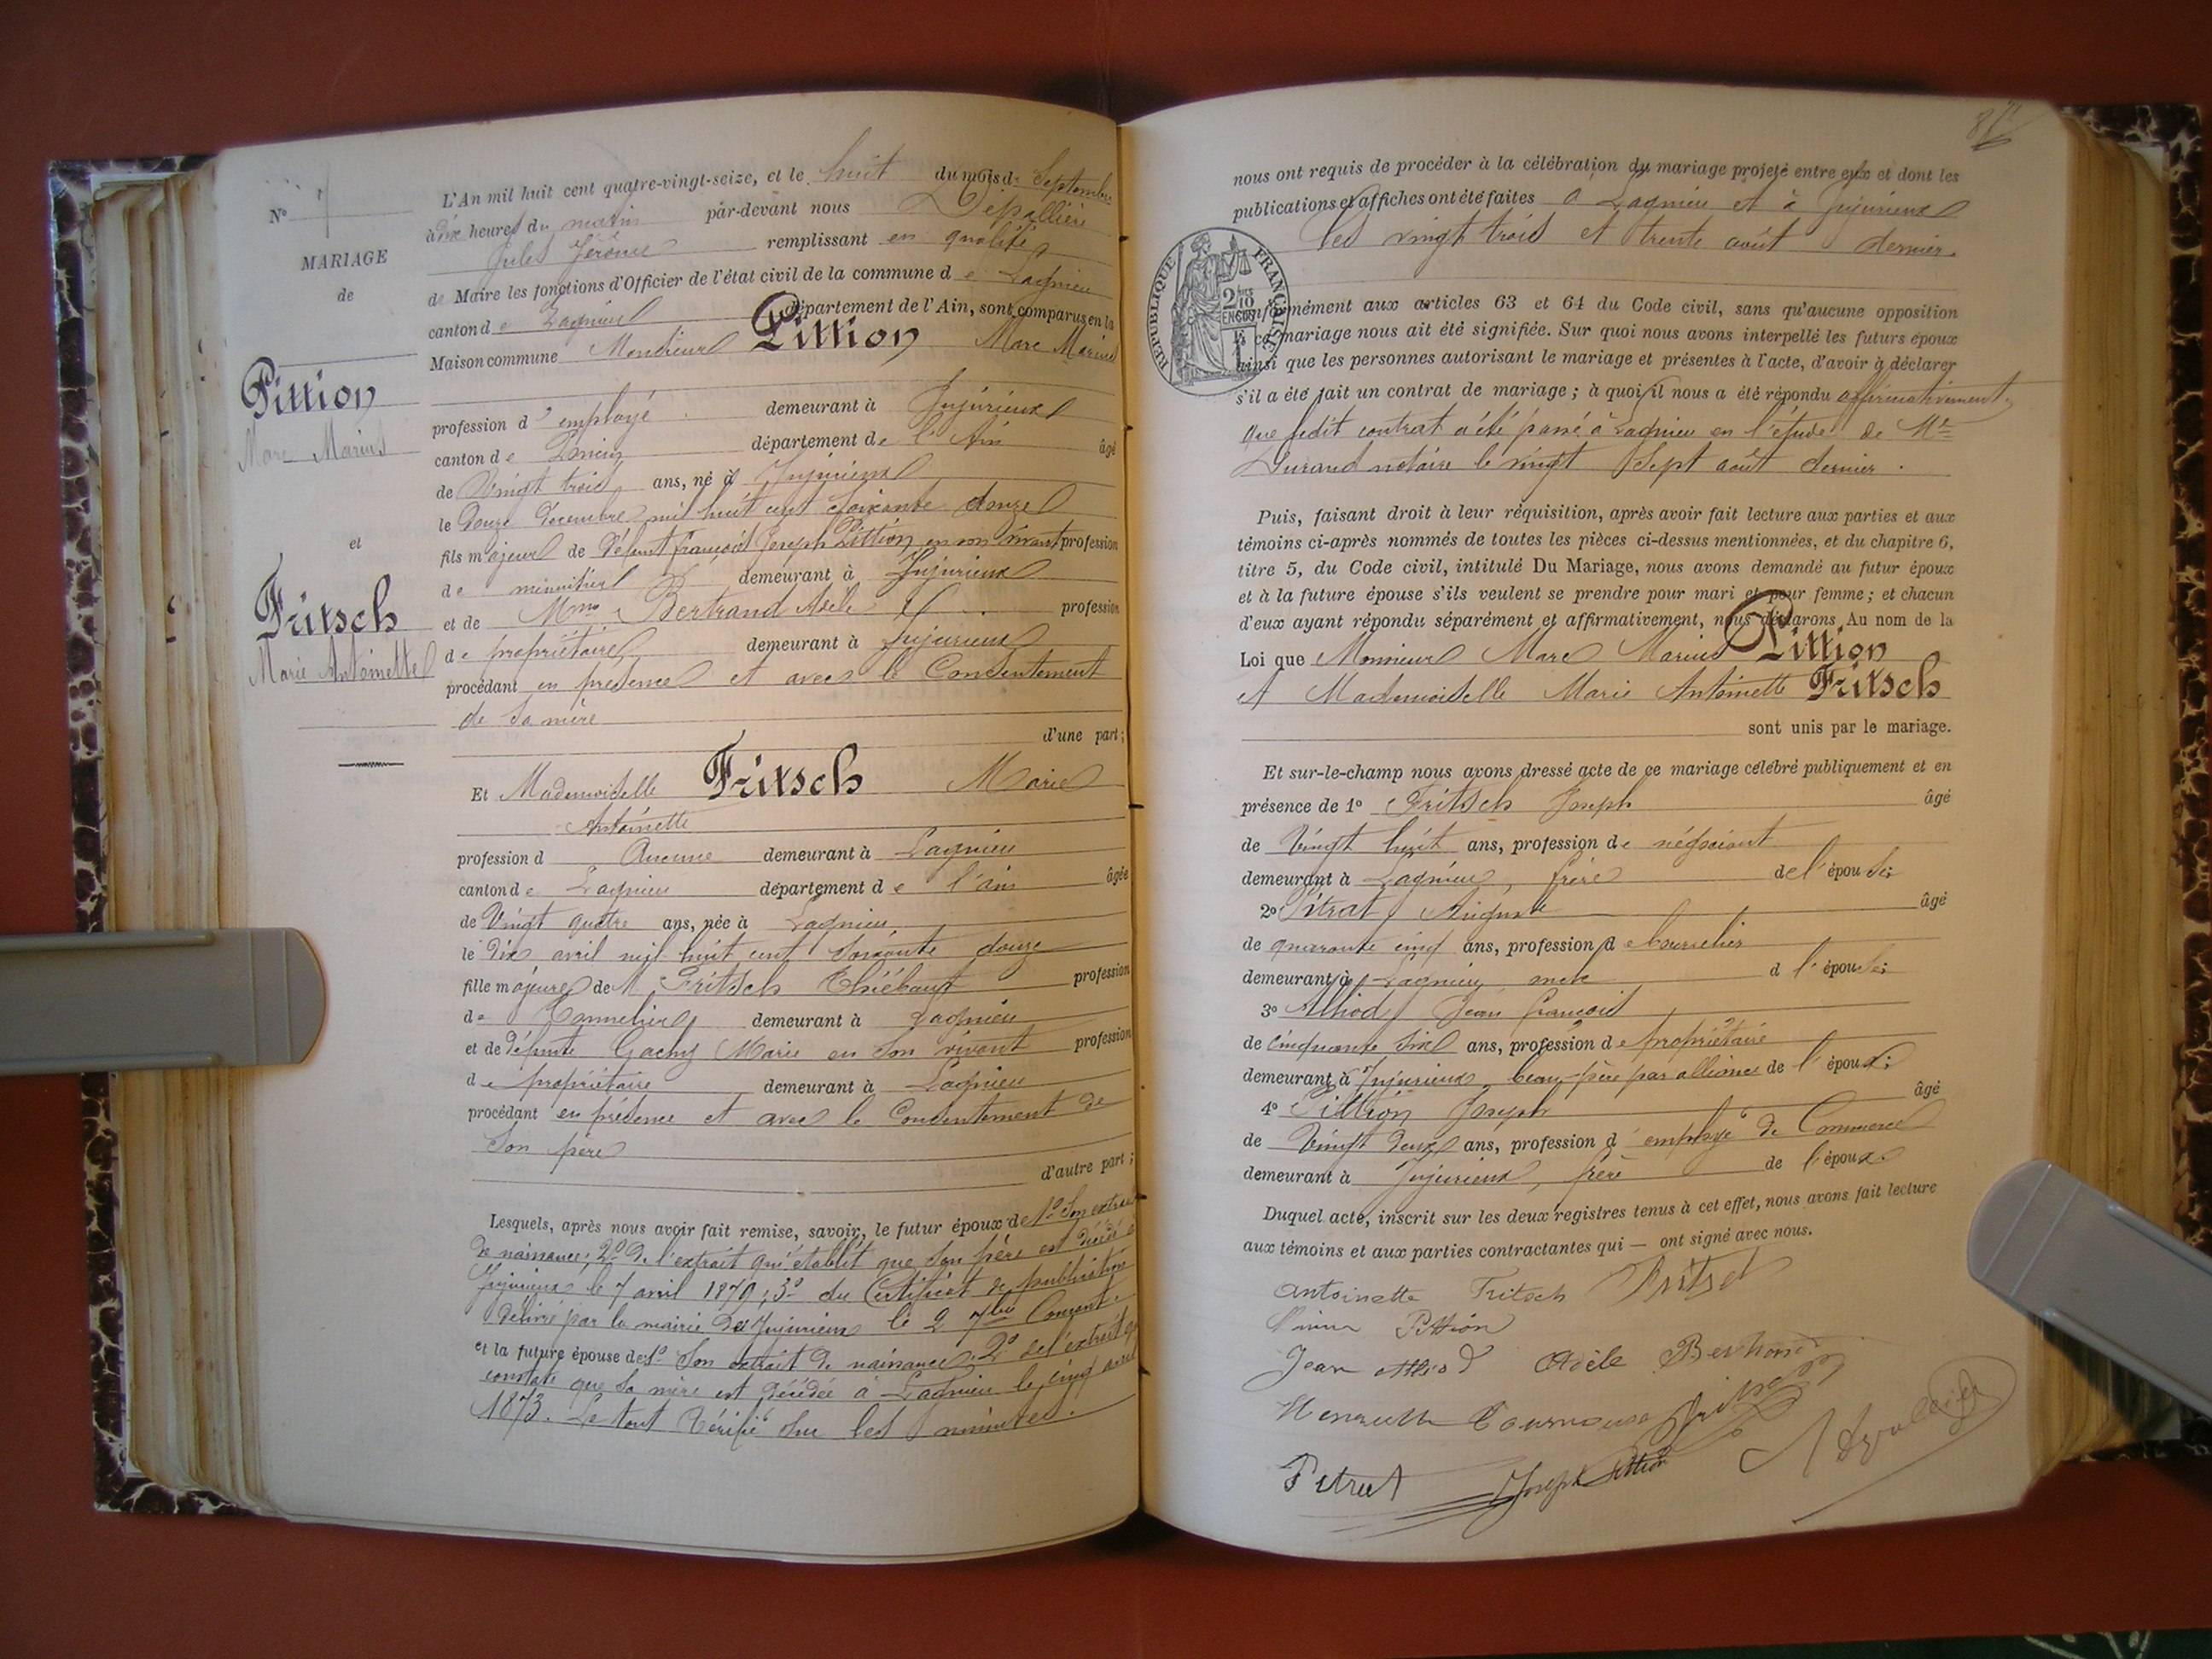 L'An mil huit cent quatre-vingt-seize, et le huit du mois de Septembre
à dix heures du matin par-devant nous Depallière
Jules Jérôme remplissant en qualité
de Maire les fonctions d'Officier de l'état civil de la commune de Lagnieu
canton de Lagnieu département de l'Ain, sont comparus en la
Maison commune Monsieur Pittion Marc Marius
profession d'employé demeurant à Jujurieux
canton de Poncin département de l'Ain âgé
de Vingt trois ans, né à Jujurieux
le Douze Décembre mil huit cent soixante douze
fils majeur de Défunt françois Joseph Pittion en son vivant profession
de menuisier demeurant à Jujurieux
et de Mme Bertrand Adèle profession
de propriétaire demeurant à Jujurieux
procédant en présence et avec le Consentement
de sa mère
d'une part;
Et Mademoiselle Fritsch Marie
Antoinette
profession d Aucune demeurant à Lagnieu
canton de Lagnieu département de l'ain âgée
de Vingt quatre ans, née à Lagnieu
le Dix avril mil huit cent soixante douze
fille majeure de M Fritsch Thiébaut profession
de Tonnelier demeurant à Lagnieu
et de défunte Gachy Marie en son vivant profession
de propriétaire demeurant à Lagnieu
procédant en présence et avec le Consentement de
Son père
d'autre part;
Lesquels, après nous avoir fait remise, savoir, le futur époux de 1º Son extrait
de naissance; 2º De l'extrait qui établit que son père est décédé à
Jujurieux le 7 avril 1879; 3º du Certificat de publication
délivré par la mairie de Jujurieux le 2 7bre Courant.
et la future épouse de 1º Son extrait de naissance; 2º de l'extrait qui
constate que sa mère est décédée à Lagnieu le cinq avril
1873. Le tout Vérifié sur les minutes.
Nº 7
MARIAGE
de
Pittion
Marc Marius
et
Fritsch
Marie Antoinette
nous ont requis de procéder à la célébration du mariage projeté entre eux et dont les
publications et affiches ont été faites à Lagnieu et à Jujurieux
les vingt trois et trente août dernier.
RÉPUBLIQUE FRANÇAISE
2/10 EN SUS
conformément aux articles 63 et 64 du Code civil, sans qu'aucune opposition
à ce mariage nous ait été signifiée. Sur quoi nous avons interpellé les futurs époux
ainsi que les personnes autorisant le mariage et présentes à l'acte, d'avoir à déclarer
s'il a été fait un contrat de mariage; à quoi il nous a été répondu affirmativement,
que ledit contrat a été passé à Lagnieu en l'étude de Me
Durand notaire le vingt Sept août dernier.
Puis, faisant droit à leur réquisition, après avoir fait lecture aux parties et aux
témoins ci-après nommés de toutes les pièces ci-dessus mentionnées, et du chapitre 6,
titre 5, du Code civil, intitulé Du Mariage, nous avons demandé au futur époux
et à la future épouse s'ils veulent se prendre pour mari et pour femme; et chacun
d'eux ayant répondu séparément et affirmativement, nous déclarons Au nom de la
Loi que Monsieur Marc Marius Pittion
et Mademoiselle Marie Antoinette Fritsch
sont unis par le mariage.
Et sur-le-champ nous avons dressé acte de ce mariage célébré publiquement et en
présence de 1º Fritsch Joseph âgé
de Vingt huit ans, profession de négociant
demeurant à Lagnieu, frère de l'épouse;
2º Pitrat Auguste âgé
de quarante cinq ans, profession de bourrelier
demeurant à Lagnieu d l'épouse;
3º Alliod Jean françois
de Cinquante six ans, profession de propriétaire
demeurant à Jujurieux, beau-père par alliance de l'époux;
4º Pittion Joseph âgé
de Vingt deux ans, profession d'employé de Commerce
demeurant à Jujurieux, frère de l'époux
Duquel acte, inscrit sur les deux registres tenus à cet effet, nous avons fait lecture
aux témoins et aux parties contractantes qui — ont signé avec nous.
Antoinette Fritsch Fritsch
Pittion
Jean Alliod Adèle Bertrand
Fritsch
Pitrat Joseph Pittion Depallière